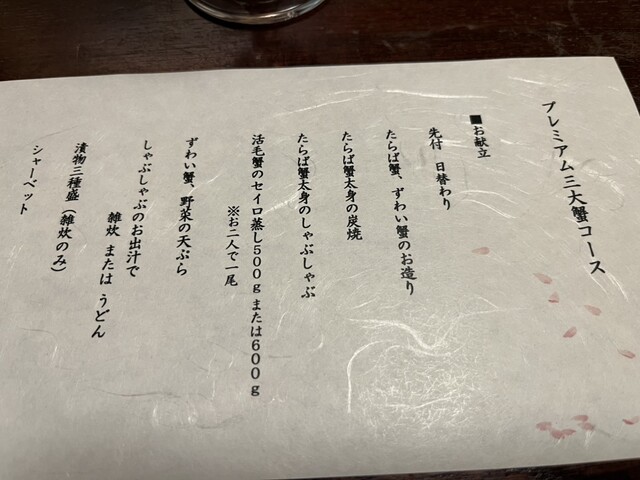 プレミアム三大蟹コース
■お献立
先付　日替わり
たらば蟹、ずわい蟹のお造り
たらば蟹太身の炭焼
たらば蟹太身のしゃぶしゃぶ
活毛蟹のセイロ蒸し500g または600g
※お二人で一尾
ずわい蟹、野菜の天ぷら
しゃぶしゃぶのお出汁で
雑炊 または うどん
漬物三種盛（雑炊のみ）
シャーベット